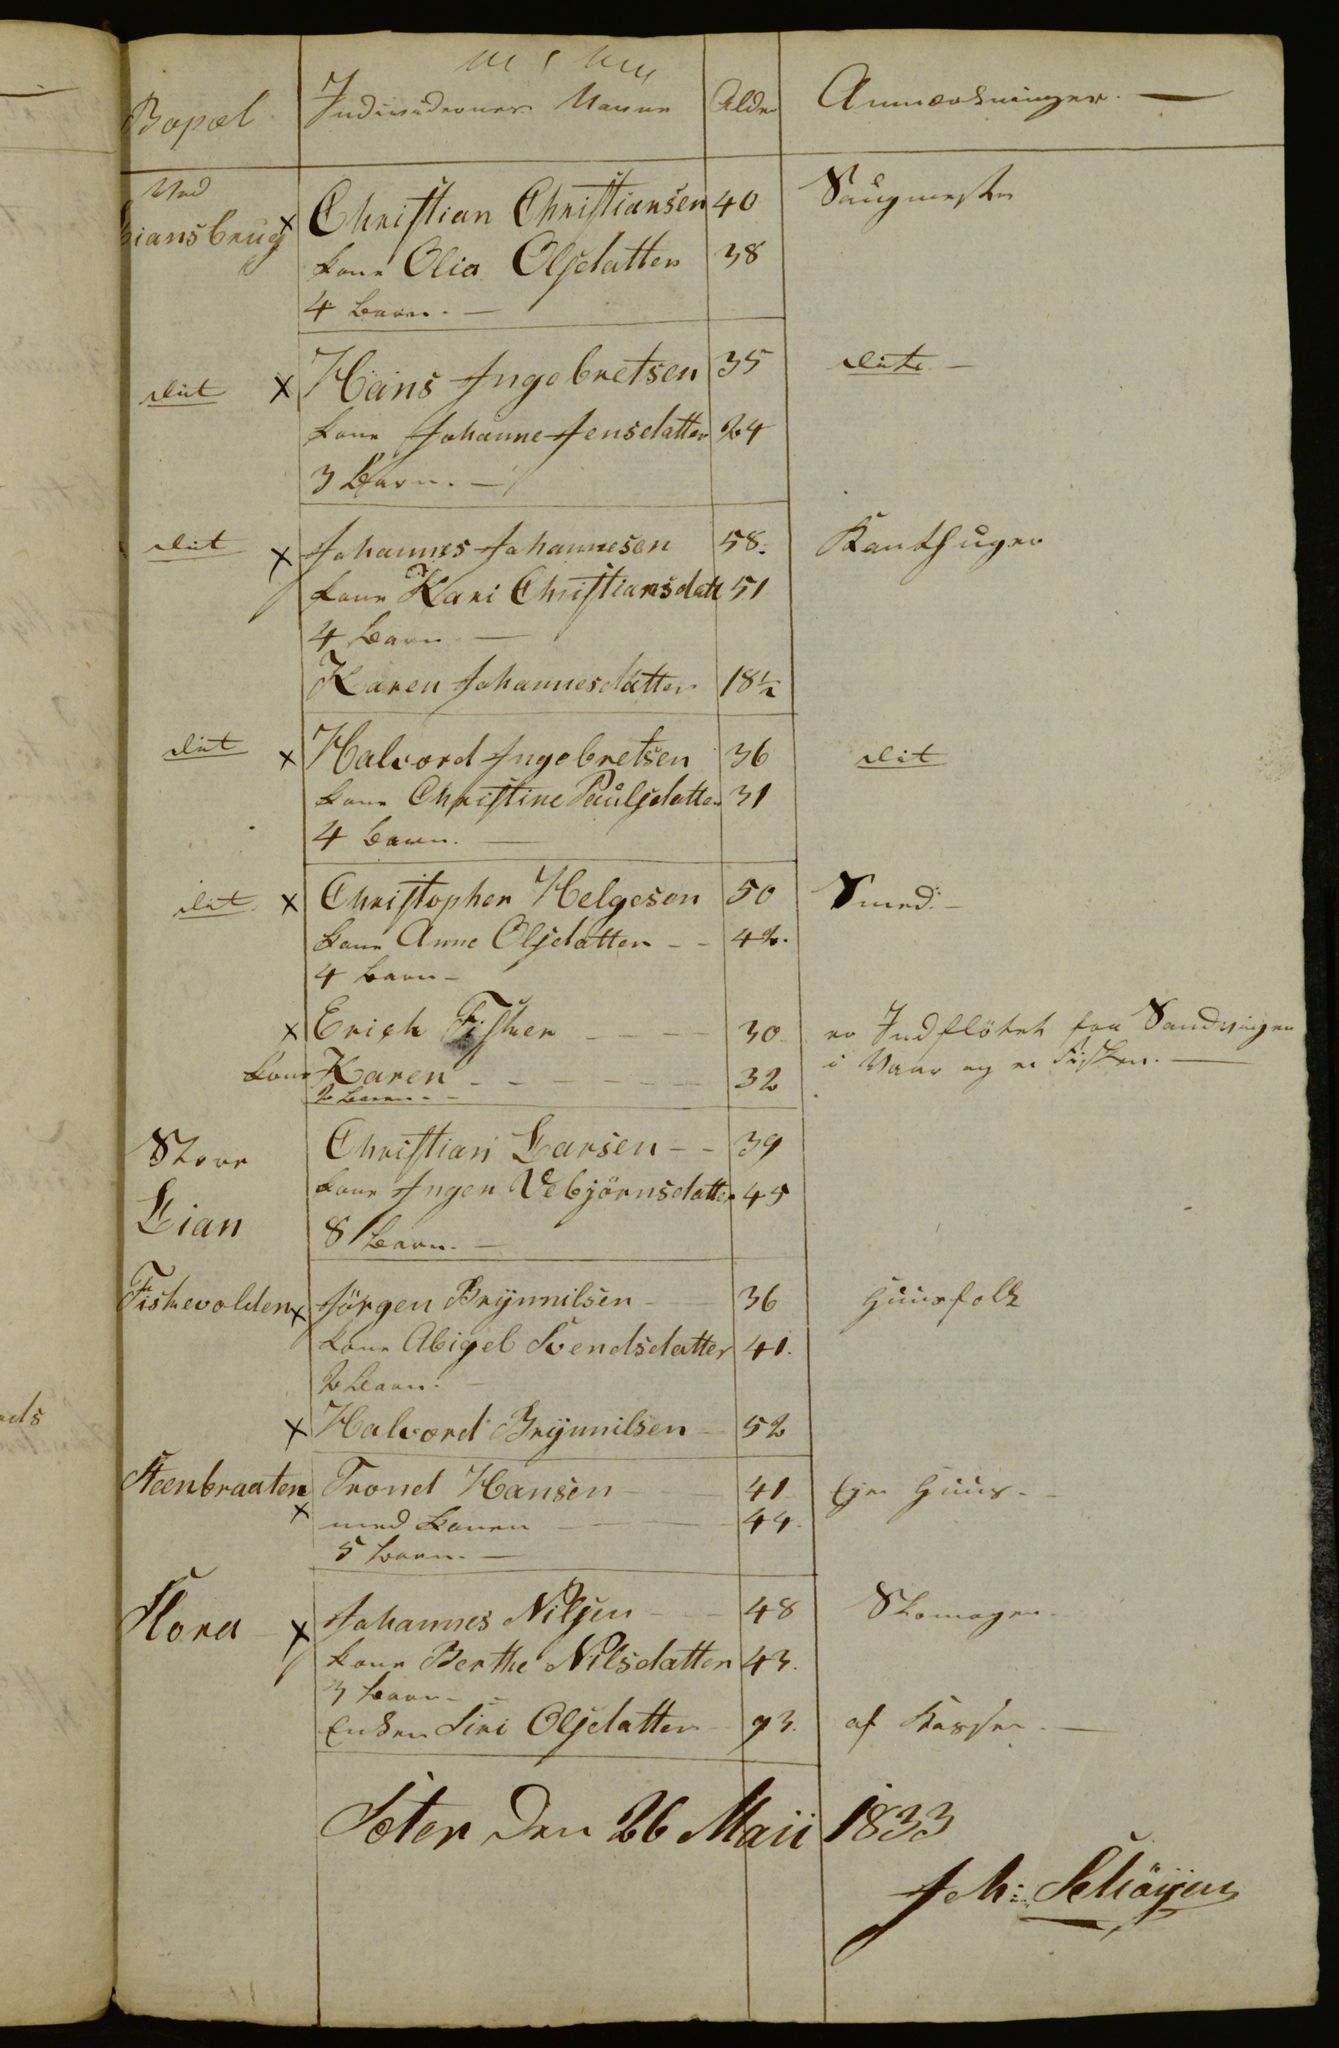 Bopæl Individernes Navne Alder Anmærkninger. —
Ved
Liansbrug x Christian Christiansen 40 Saugmester
kone Olia Olsdatter 38
4 børn. —
dit x Hans Ingebretsen 35 dito —
kone Johanne Jensdatter 24
3 børn. —
dit x Johannes Johannesen 58. Kanthuger
kone Kari Christiansdatt 51
4 børn —
Karen Johannesdatter 18½
dit x Halvord Ingebretsen 36 dit
kone Christine Paulsdatter 31
4 børn. —
dit x Christopher Helgesen 50 Smed. —
kone Anne Olsdatter - - 42.
4 børn —
x Erich Fisker — — 30 er Indflötet fra Sandvigen
kone Karen - - - - - 32 i Vaar og er Fisker. —
2 børn. -
Store Christian Larsen - - 39
kone Inger Vebjörnsdatter 45
Lian 8 børn. —
Fiskevolden x Jörgen Brynnilsen — 36 Huusfolk
kone Abigel Svendsdatter 41.
2 børn. —
x Halvord Brynnilsen — 52
Steenbraaten Trond Hansen — 41 Ejer Huus. -
x med konen — — 44.
5 børn. —
Flora x Johannes Nilsen - - 48 Skomager.
kone Berthe Nilsdatter 43.
3 børn —
Enken Siri Olsdatter — 73. af Kassen. —
Seter Den 26 Maii 1833
Joh: Schöyen